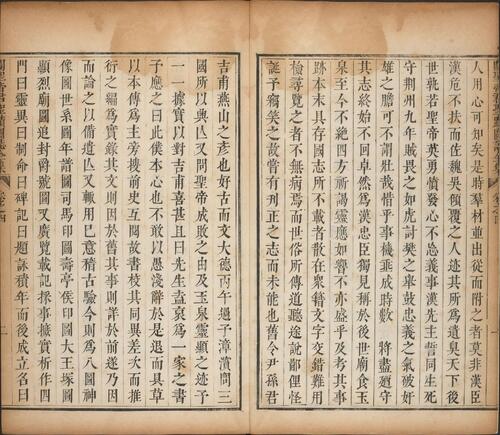 人用心可知矣是時羣材並出從而附之者莫非漢臣
漢危不扶而佐魏吳傾覆之人迹其所為遺臭天下後
世孰若聖帝英勇憤發心不忘義事漢先主誓同生死
守荆州九年賊畏之如虎討樊之舉鼓忠義之氣破奸
雄之膽可不謂壯哉惜乎事機垂成時數 將盡廼守
其志終始不回卓然為漢忠臣獨見稱於後世廟食玉
泉至今不絕四方所謁靈應如響不亦盛乎及考其事
跡本末具存國志所不載者散在衆籍文字交錯難用
檢尋覽之者不無病焉而世俗所傳道聽途說鄙俚怪
誕予竊笑之故嘗有刋正之志而未能也舊令尹孫君
吉甫燕山之彥也好古而文大德丙午過予漳濱問三
國所以興亾又問聖帝成敗之由及玉泉靈顯之迹予
一一據實以對吉甫喜甚且曰先生盍裒為一家之書
予應之曰此僕本心也不敢以愚淺辭於是退而具草
以本傳為主旁搜前史互閱故書枝其同異差次而推
衍之編為實錄其文則因於舊其事則詳於前遂乃因
而論之以備遺亾又輒用巳意稽古驗今則為八圖神
像圖世系圖年譜圖司馬印圖壽亭侯印圖大王塚圖
顯烈廟圖追封爵號圖又廣覽載記採事摭實析作四
門曰靈異曰制命曰碑記曰題詠積年而後成立名曰
二